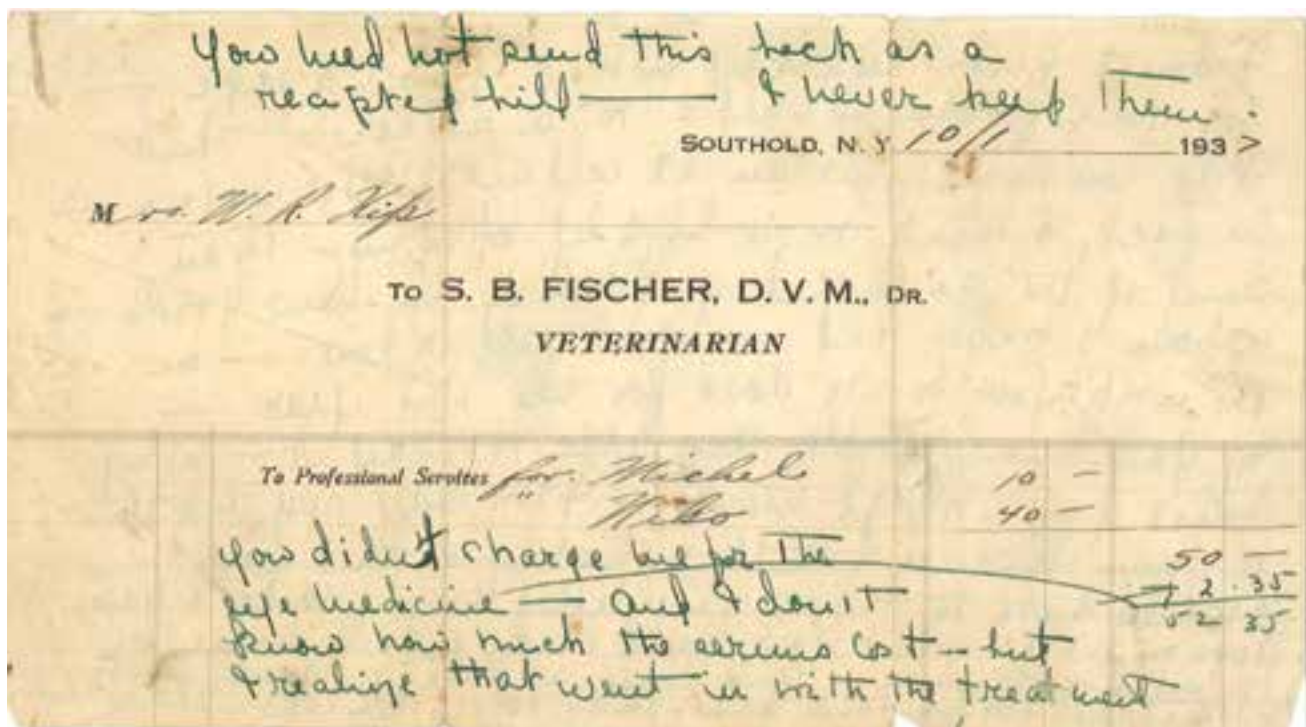 You need not send this back as a
receipted bill — I never keep them.
SOUTHOLD, N. Y 10/1 1937
Mrs. W. R.
TO S. B. FISCHER, D. V. M., DR.
VETERINARIAN
To Professional Services for Michel 10 —
" 40 —
You didn't charge me for the 50 —
eye medicine — and I don't 2.35
know how much the serums cost — but 52 35
I realize that went in with the treatment